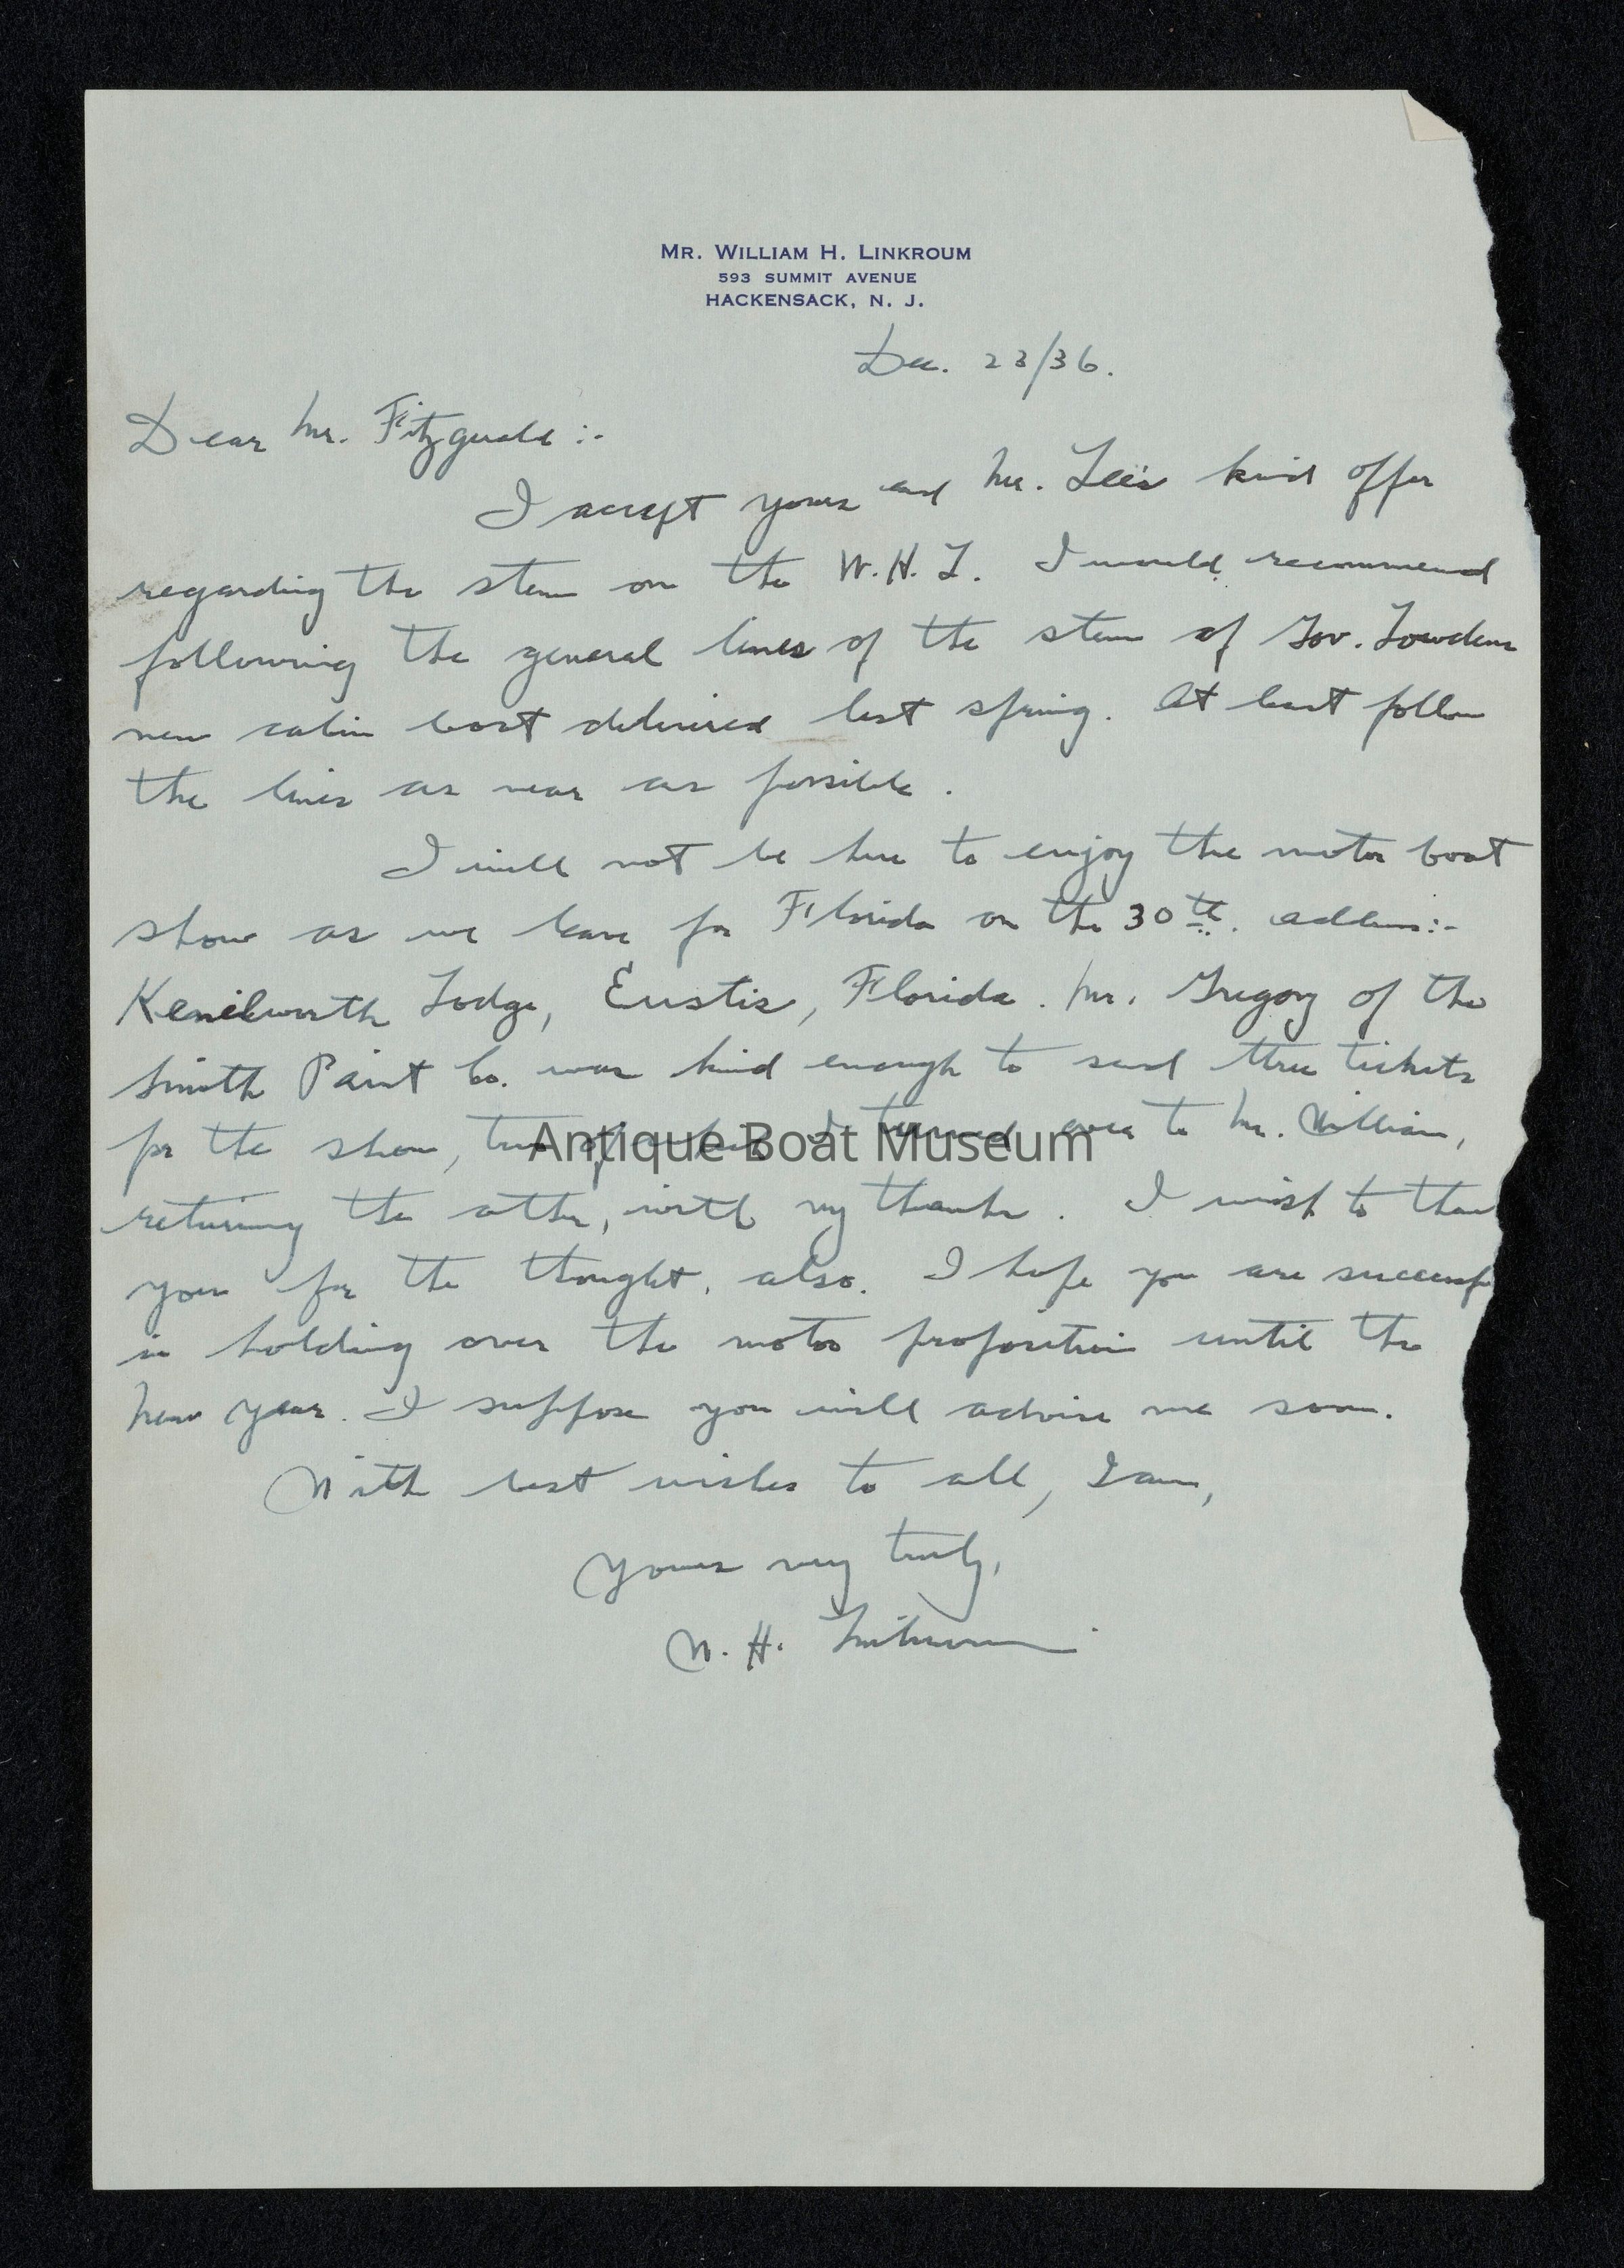 MR. WILLIAM H. LINKROUM
593 SUMMIT AVENUE
HACKENSACK, N. J.
Dec. 23/36.
Dear Mr. Fitzgerald :-
I accept yours and Mr. Lee's kind offer
regarding the stem on the W.H.L. I would recommend
following the general lines of the stem of Gov. Lowdens
new cabin boat delivered last spring. At least follow
the lines as near as possible.
I will not be here to enjoy the motor boat
show as we leave for Florida on the 30th. address:-
Kenilworth Lodge, Eustis, Florida. Mr. Gregory of the
Smith Paint Co. was kind enough to send three tickets
for the show, two of which I turned over to Mr. William,
returning the other, with my thanks. I wish to than
you for the thought, also. I hope you are successf
in holding over the motor proposition until the
New Year. I suppose you will advise me soon.
With best wishes to all, I am,
Yours very truly,
W. H. Linkroum.
Antique Boat Museum